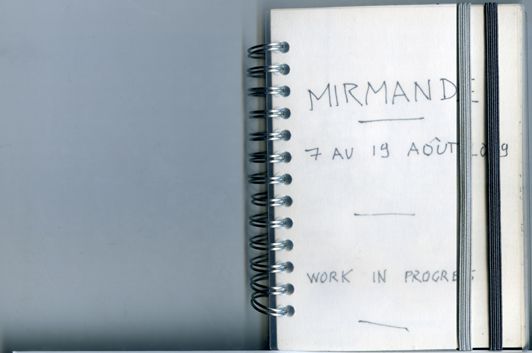 MIRMANDE
7 AU 19 AOÛT
WORK IN PROGRESS